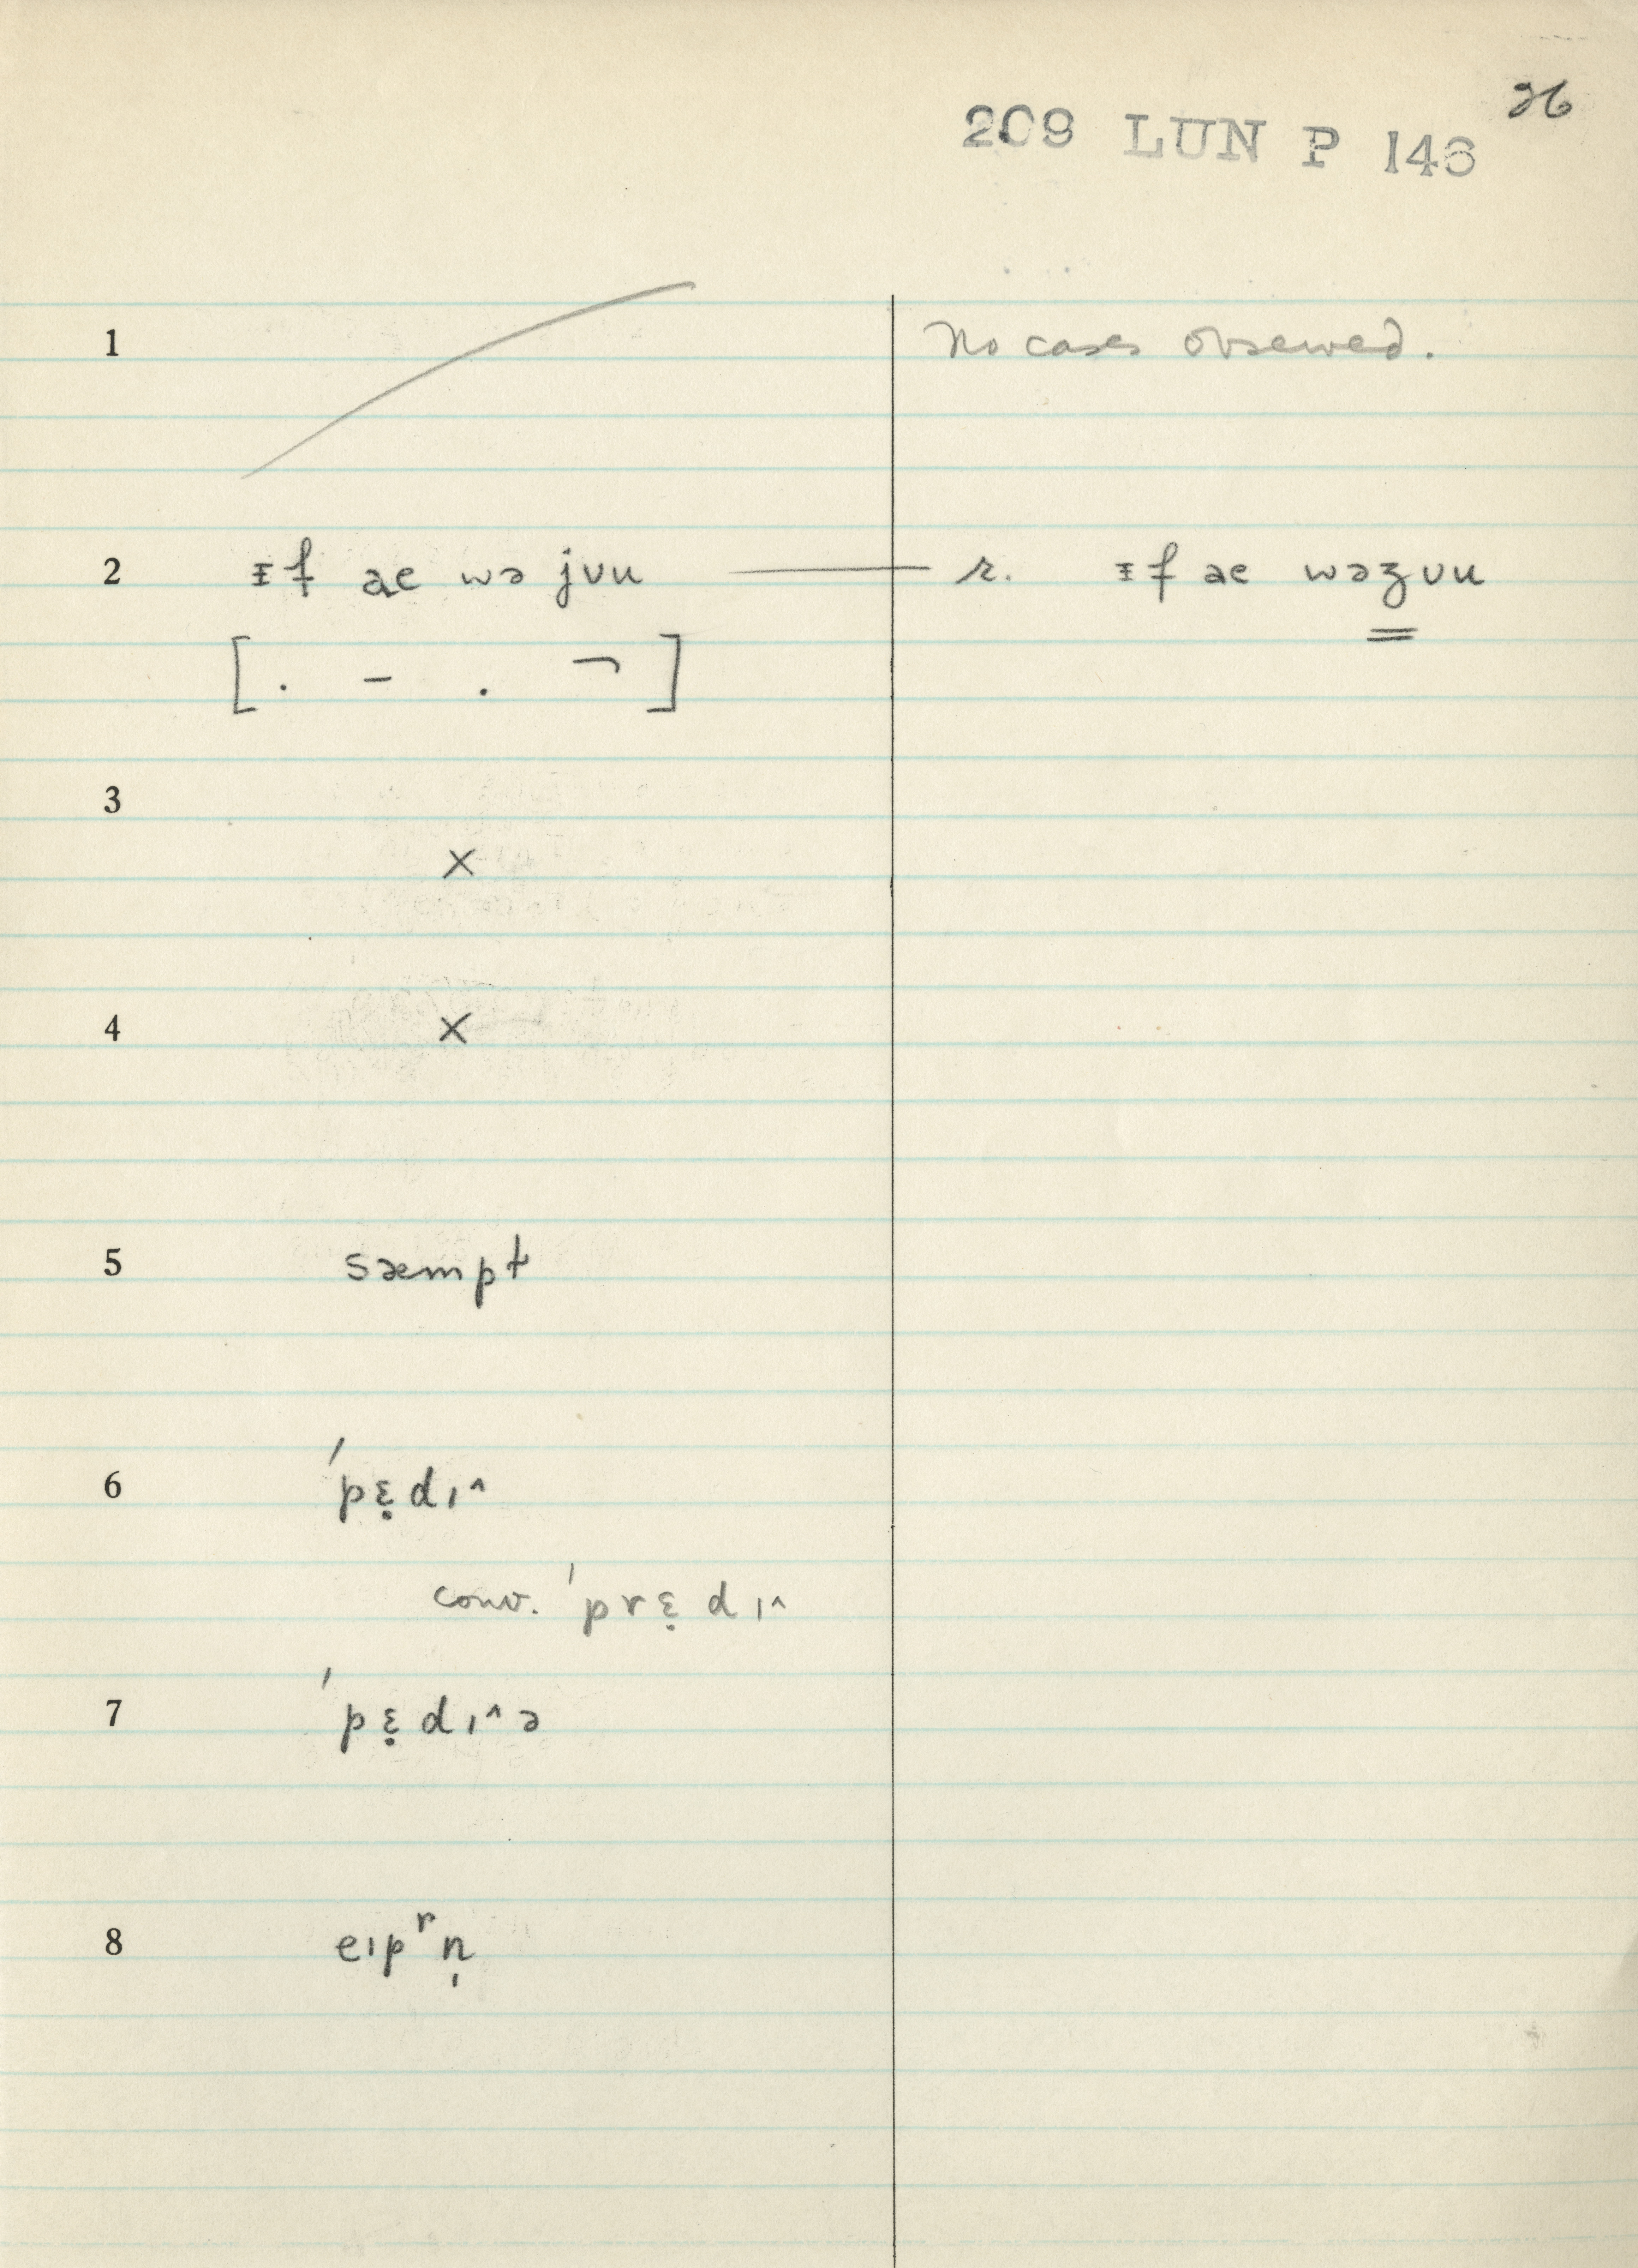 26
209 LUN P 146
1 No cases observed.
2 ᵻf ae wə jʊu — r. ᵻf ae wəʒʊu
[ . – . ¬ ]
3
×
4 ×
5 sæmpt
6 ˈpɛ̣dɪ^
conv. ˈprɛ̣dɪ^
7 ˈpɛ̣dɪ^ə
8 eɪpʳn̩